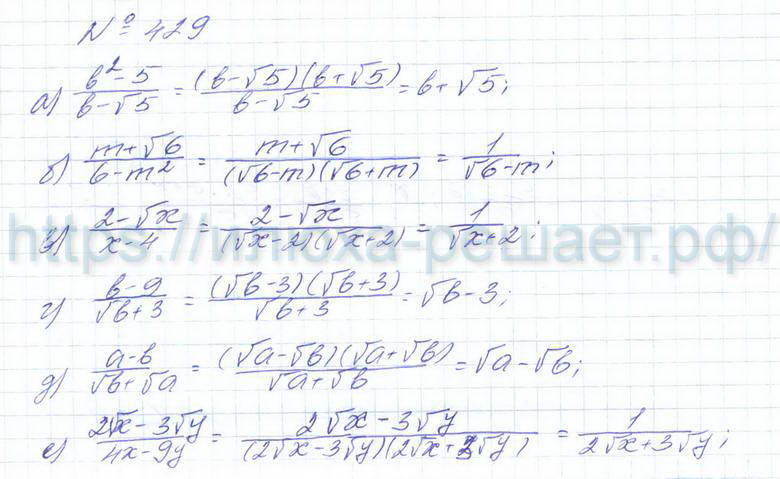 № 429
а) (b²-5)/(b-√5) = ((b-√5)(b+√5))/(b-√5) = b+√5;
б) (m+√6)/(6-m²) = (m+√6)/((√6-m)(√6+m)) = 1/(√6-m);
в) (2-√x)/(x-4) = (2-√x)/((√x-2)(√x+2)) = 1/(√x+2);
https://илюха-решает.рф/
г) (b-9)/(√b+3) = ((√b-3)(√b+3))/(√b+3) = √b-3;
д) (a-b)/(√b+√a) = ((√a-√b)(√a+√b))/(√a+√b) = √a-√b;
е) (2√x-3√y)/(4x-9y) = (2√x-3√y)/((2√x-3√y)(2√x+3√y)) = 1/(2√x+3√y);